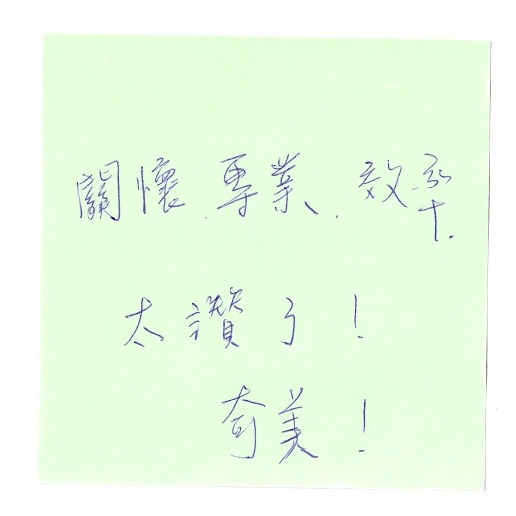 關懷、專業、效率.
太讚了！
奇美！